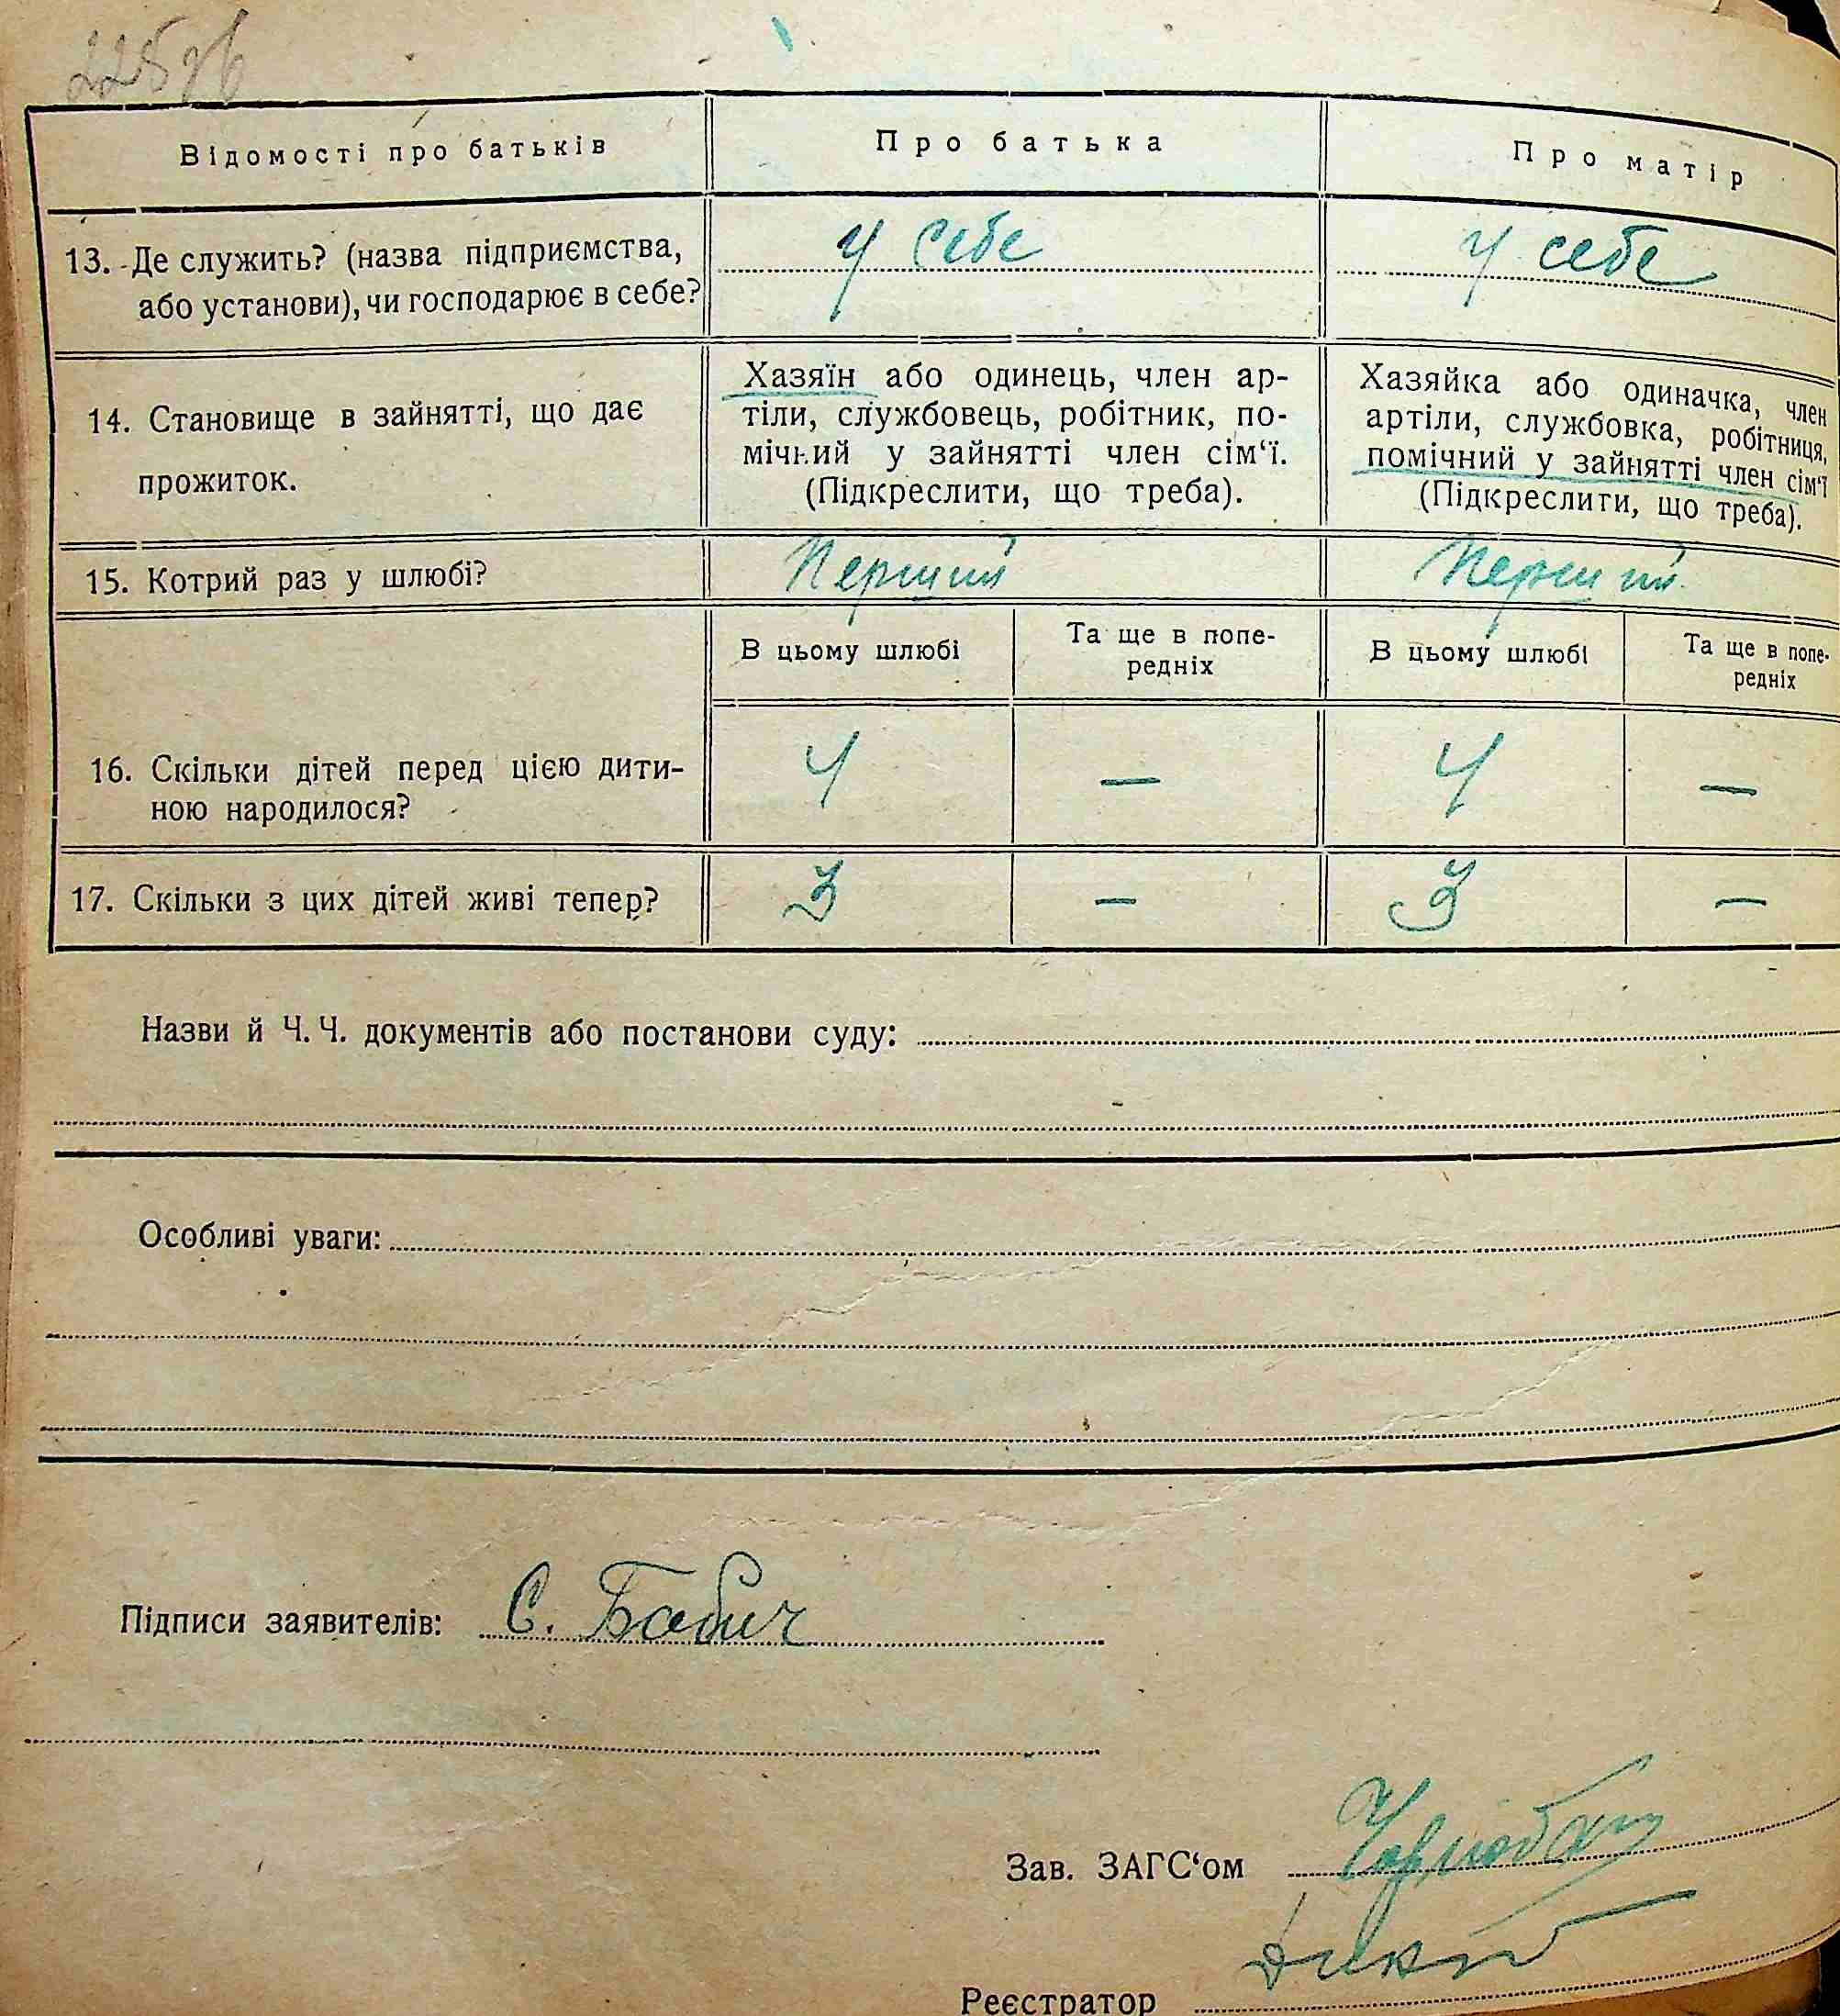 225зв
Відомості про батьків
Про батька
Про матір
13. Де служить? (назва підприємства,
або установи), чи господарює в себе?
у себе
у себе
14. Становище в зайнятті, що дає
прожиток.
Хазяїн або одинець, член ар-
тіли, службовець, робітник, по-
мічний у зайнятті член сім‘ї.
(Підкреслити, що треба).
Хазяйка або одиначка, член
артіли, службовка, робітниця,
помічний у зайнятті член сім‘ї
(Підкреслити, що треба).
15. Котрий раз у шлюбі?
Перший
Перший
В цьому шлюбі
Та ще в попе-
редніх
В цьому шлюбі
Та ще в попе-
редніх
16. Скільки дітей перед цією дити-
ною народилося?
4
—
4
—
17. Скільки з цих дітей живі тепер?
3
—
3
—
Назви й Ч. Ч. документів або постанови суду:
Особливі уваги:
Підписи заявителів: С. Бабич
Зав. ЗАГС‘ом
Реєстратор